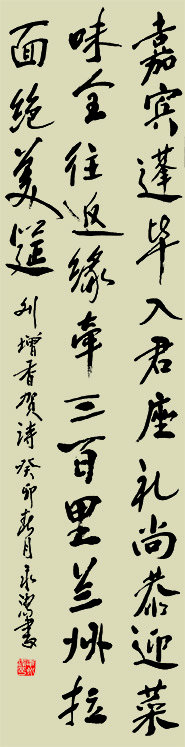 嘉宾蓬毕入君座礼尚恭迎菜
味全往返缘牵三百里兰州拉
面绝美筵
刘增香贺诗癸卯春月书